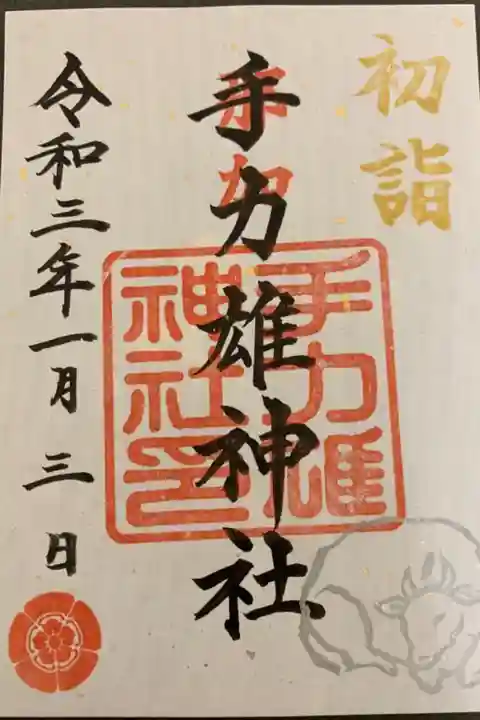 初詣
手力雄神社
手力雄
神社印
令和三年一月三日